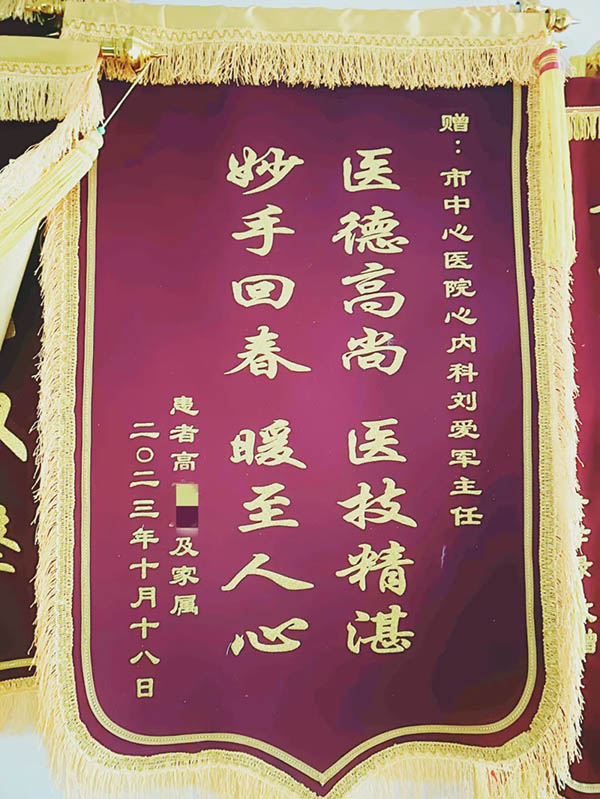 赠：市中心医院心内科刘爱军主任
医德高尚 医技精湛
妙手回春 暖至人心
患者高 及家属
二〇二三年十月十八日